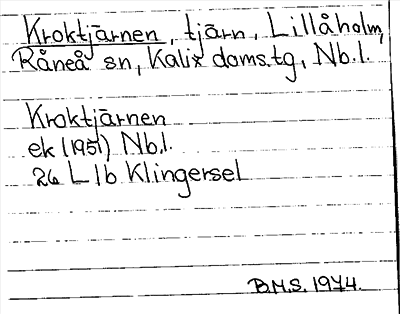 Kroktjärnen, tjärn, Lillåholm,
Råneå sn, Kalix doms.tg, Nb.l.
Kroktjärnen
ek (1951) Nb.l.
26 L 1b Klingersel
B.M.S. 1974.